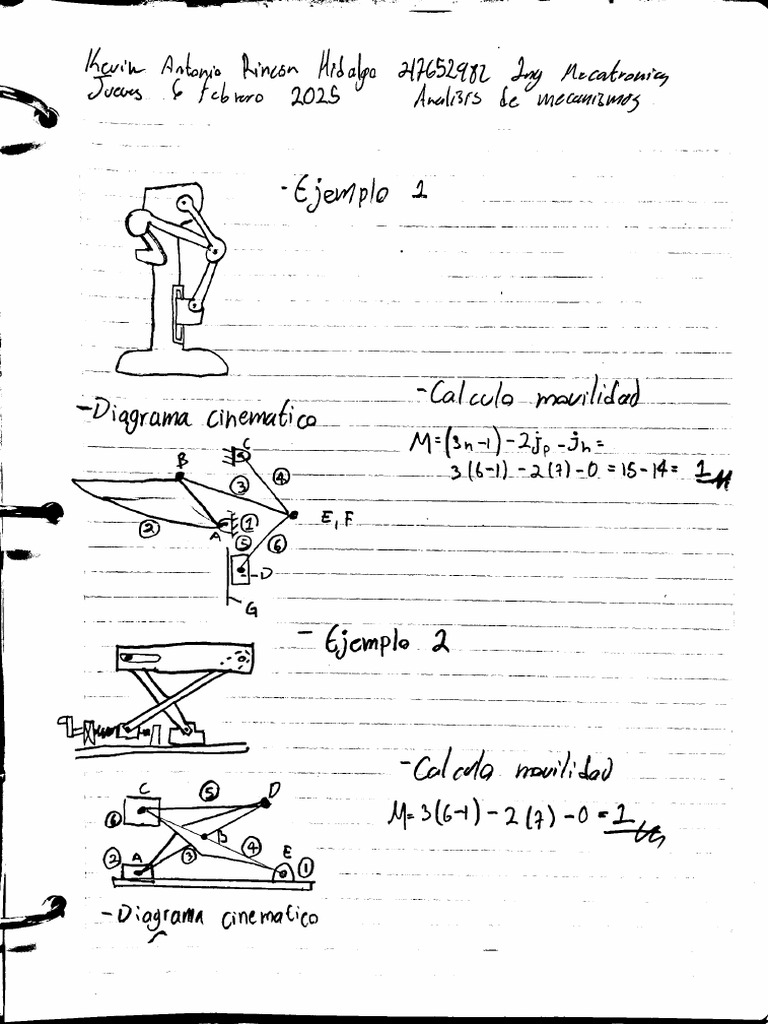 Kevin Antonio Rincon Hidalgo 217652982 Ing Mecatronica
Jueves 6 febrero 2025 Analisis de mecanismos
- Ejemplo 1
- Calculo movilidad
- Diagrama cinematico
M = (3n-1) - 2jp - jh =
3(6-1) - 2(7) - 0 = 15 - 14 = 1
C
B
4
3
2
A
1
E, F
5
6
D
G
- Ejemplo 2
- Calculo movilidad
M = 3(6-1) - 2(7) - 0 = 1
C
5
D
6
B
2
A
3
4
E
1
- Diagrama cinematico